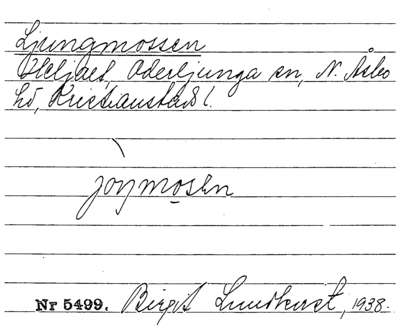 Ljungmossen
Oderljunga sn, N. Åsbo
hd, Kristianstads l.
joŋmosen
Nr 5499. Birgit Lundkvist, 1938.